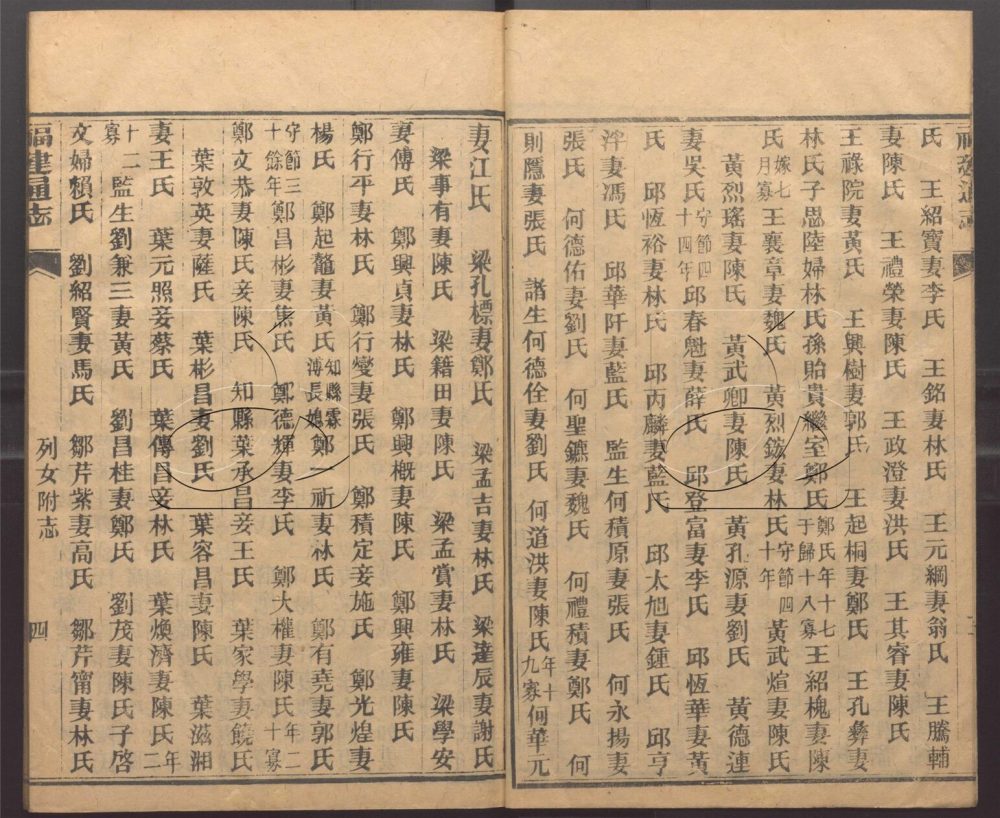 氏 王紹寶妻李氏 王銘妻林氏 王元綱妻翁氏 王騰輔
妻陳氏 王禮榮妻陳氏 王政澄妻洪氏 王其睿妻陳氏
王祿院妻黃氏 王興樹妻郭氏 王起桐妻鄭氏 王孔彝妻
林氏子思陸婦林氏孫貽貴繼室鄭氏鄭氏年十七于歸十八寡王紹槐妻陳
氏嫁七月寡王襄章妻魏氏 黃烈鎡妻林氏守節四十年黃武煊妻陳氏
黃烈瑤妻陳氏 黃武卿妻陳氏 黃孔源妻劉氏 黃德連
妻吳氏守節四十四年邱春魁妻薛氏 邱登富妻李氏 邱恆華妻黃
氏 邱恆裕妻林氏 邱丙麟妻藍氏 邱太旭妻鍾氏 邱亨
泮妻馮氏 邱華阡妻藍氏 監生何積原妻張氏 何永揚妻
張氏 何德佑妻劉氏 何聖鑣妻魏氏 何禮積妻鄭氏 何
則隱妻張氏 諸生何德佺妻劉氏 何道洪妻陳氏年十九寡何華元
妻江氏 梁孔標妻鄭氏 梁孟吉妻林氏 梁達辰妻謝氏
梁事有妻陳氏 梁籍田妻陳氏 梁孟賞妻林氏 梁學安
妻傅氏 鄭興貞妻林氏 鄭興概妻陳氏 鄭興雍妻陳氏
鄭行平妻林氏 鄭行燮妻張氏 鄭積定妾施氏 鄭光煌妻
楊氏 鄭起鼇妻黃氏知縣霖溥長媳鄭一祈妻林氏 鄭有堯妻郭氏
守節三十餘年鄭昌彬妻焦氏 鄭德輝妻李氏 鄭大權妻陳氏年二十寡
鄭文恭妻陳氏妾陳氏 知縣葉承昌妾王氏 葉家學妻饒氏
葉敦英妻薩氏 葉彬昌妻劉氏 葉容昌妻陳氏 葉滋湘
妻王氏 葉元照妾蔡氏 葉傳昌妾林氏 葉煥濟妻陳氏年二
十二寡監生劉兼三妻黃氏 劉昌桂妻鄭氏 劉茂妻陳氏子啓
文婦賴氏 劉紹賢妻馬氏 鄒芹紫妻高氏 鄒芹甯妻林氏
福建通志
列女附志
四